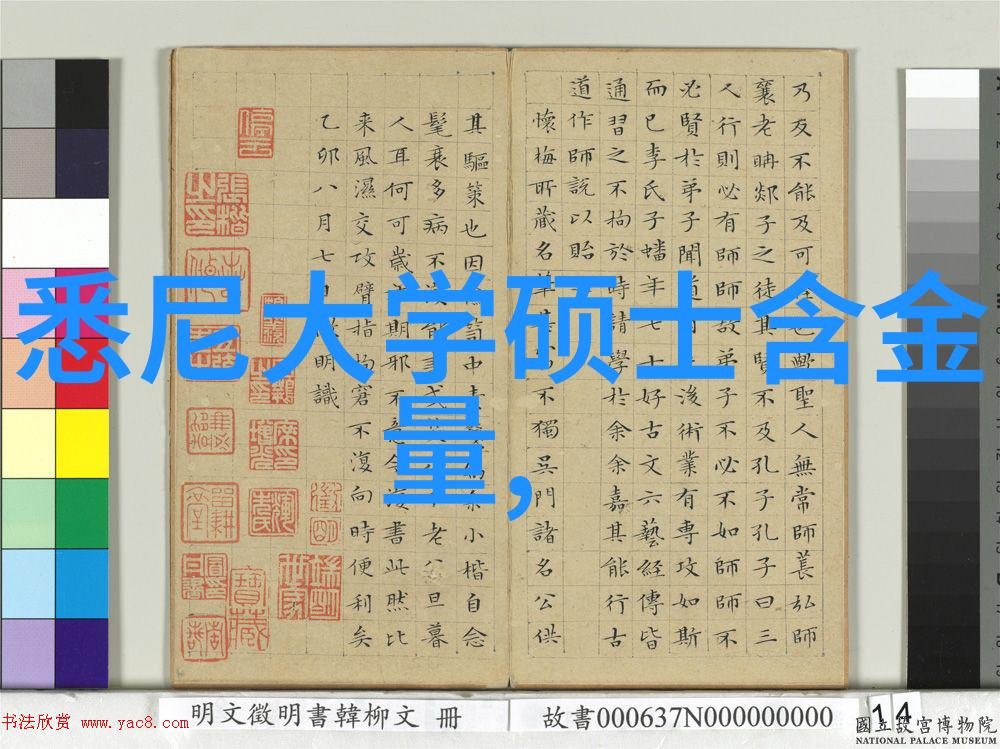 悉尼大学硕士含金
量,
乃反不能及可也歟聖人無常師萇弘師
襄老聃郯子之徒其賢不及孔子孔子曰三
人行則必有師師故弟子不必不如師師不
必賢於弟子聞道後術業有專攻如斯
而已李氏子蟠年七十好古文六藝經傳皆
通習之不拘於時請學於余余嘉其能行古
道作師說以貽
懷梅所藏名筆不獨吳門諸名公供
其驅策也因詩中小楷自念
髦衰多病不能老公旦暮
人耳何可歲期邪不意今復書此然比
来風濕交攻臂指拘窘不復向時便利矣
乙卯八月七日明識
明文徵明書韓柳文 冊
故書000637N000000000
14
書法欣赏 www.yac8.com
國立故宮博物院
NATIONAL PALACE MUSEUM